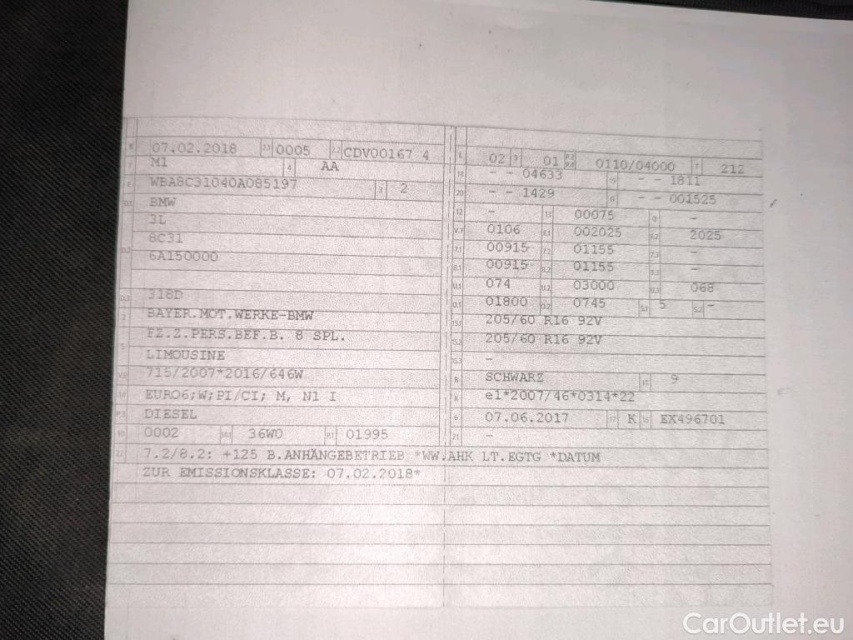 07.02.2018 0005 CDV00167 4
M1 AA
WBA8C31040A085197 2
BMW
3L
8C31
6A150000
318D
BAYER.MOT.WERKE-BMW
FZ.Z.PERS.BEF.B. 8 SPL.
LIMOUSINE
715/2007*2016/646W
EURO6;W;PI/CI; M, N1 I
DIESEL
0002 36W0 01995
02 01 0110/04000 212
- - 04633 - - 1811
- - 1429 - - 001525
- 00075 -
0106 002025 2025
00915 01155 -
00915 01155 -
074 03000 068
01800 0745 5 -
205/60 R16 92V
205/60 R16 92V
-
SCHWARZ 9
e1*2007/46*0314*22
07.06.2017 K EX496701
-
7.2/8.2: +125 B.ANHÄNGEBETRIEB *WW.AHK LT.EGTG *DATUM
ZUR EMISSIONSKLASSE: 07.02.2018*
CarOutlet.eu